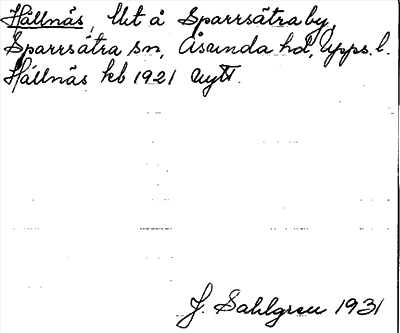 Hällnäs, Ut å Sparrsätra by,
Sparrsätra sn, Åsunda hd, Upps. l.
Hällnäs kb 1921 nytt.
J. Sahlgren 1931